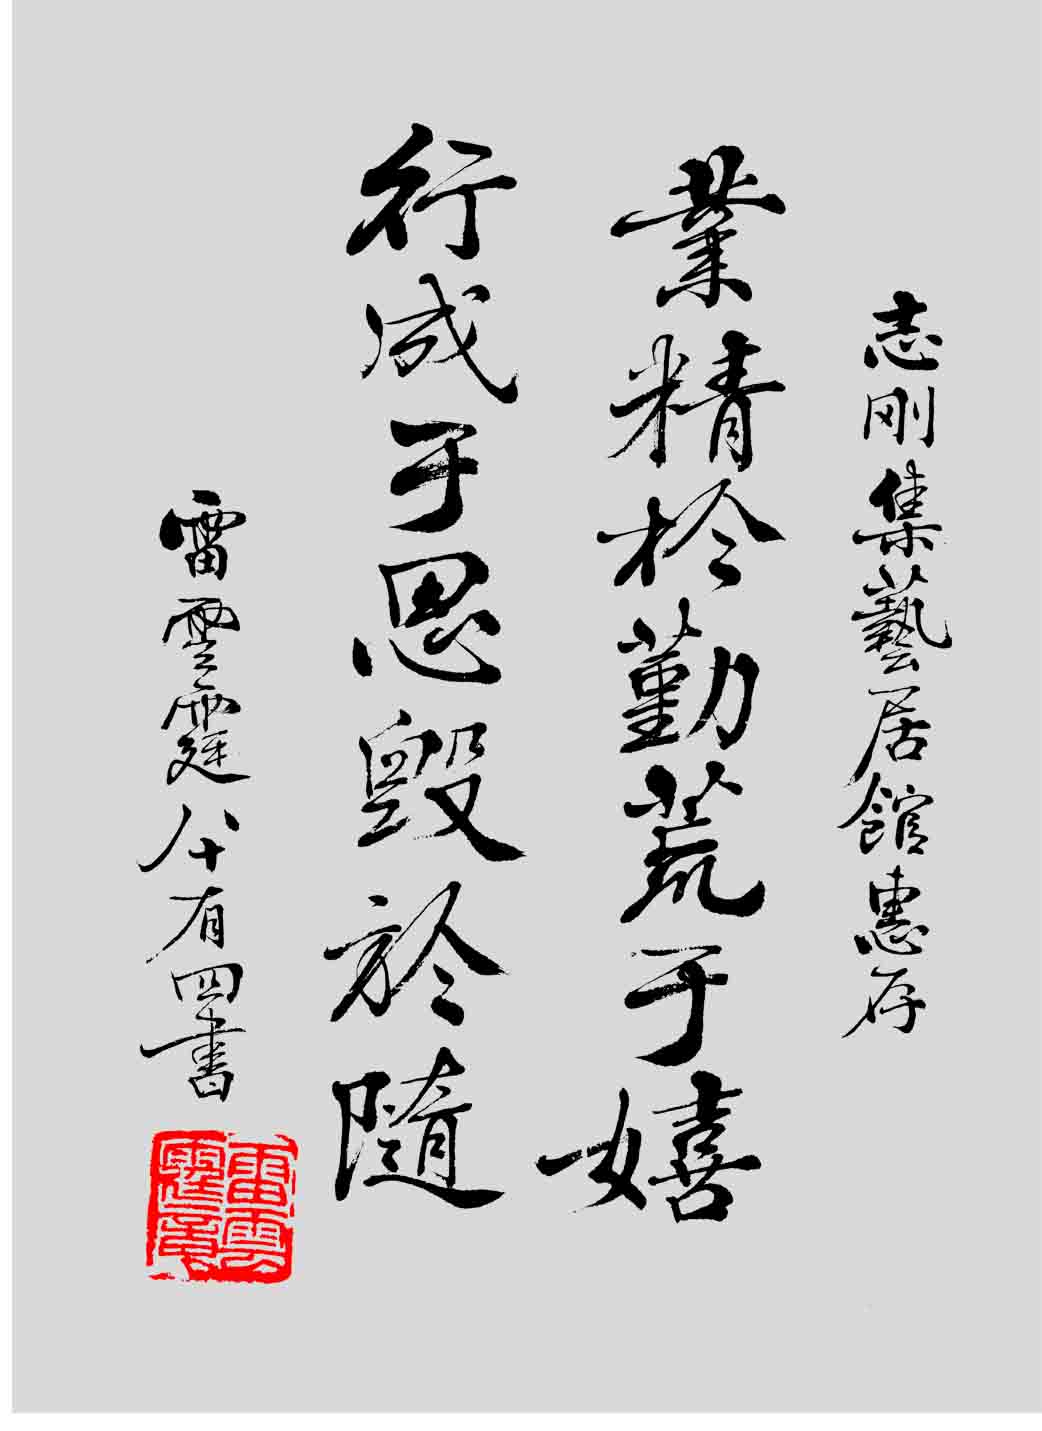 志刚集藝居館惠存
業精於勤荒于嬉
行成于思毀於隨
雷雲霆八十有四書
雷雲霆章